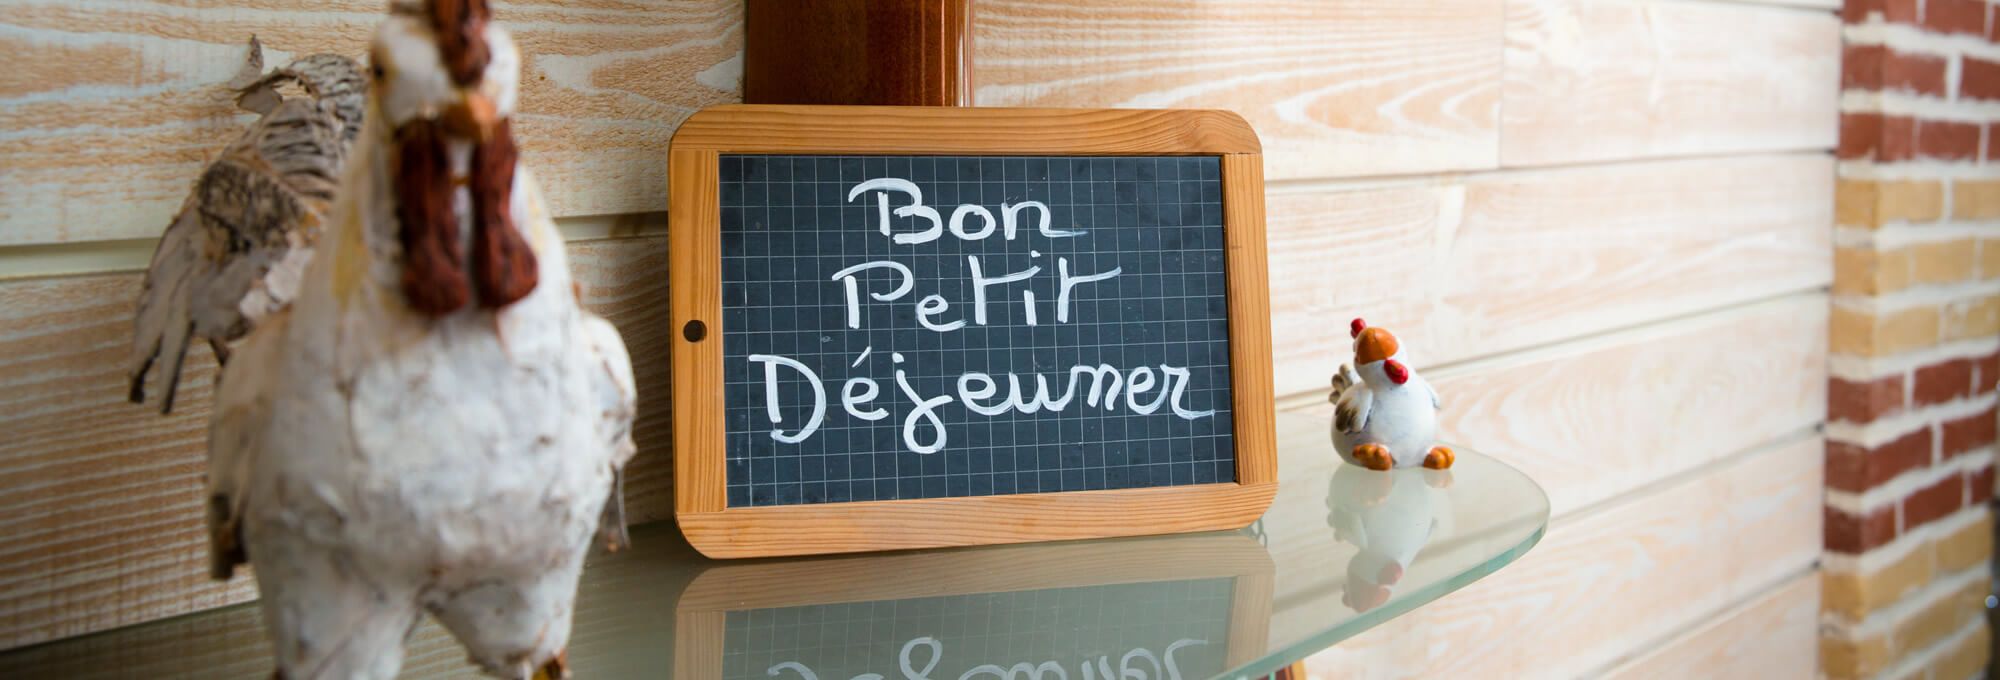 Bon
Petit
Déjeuner